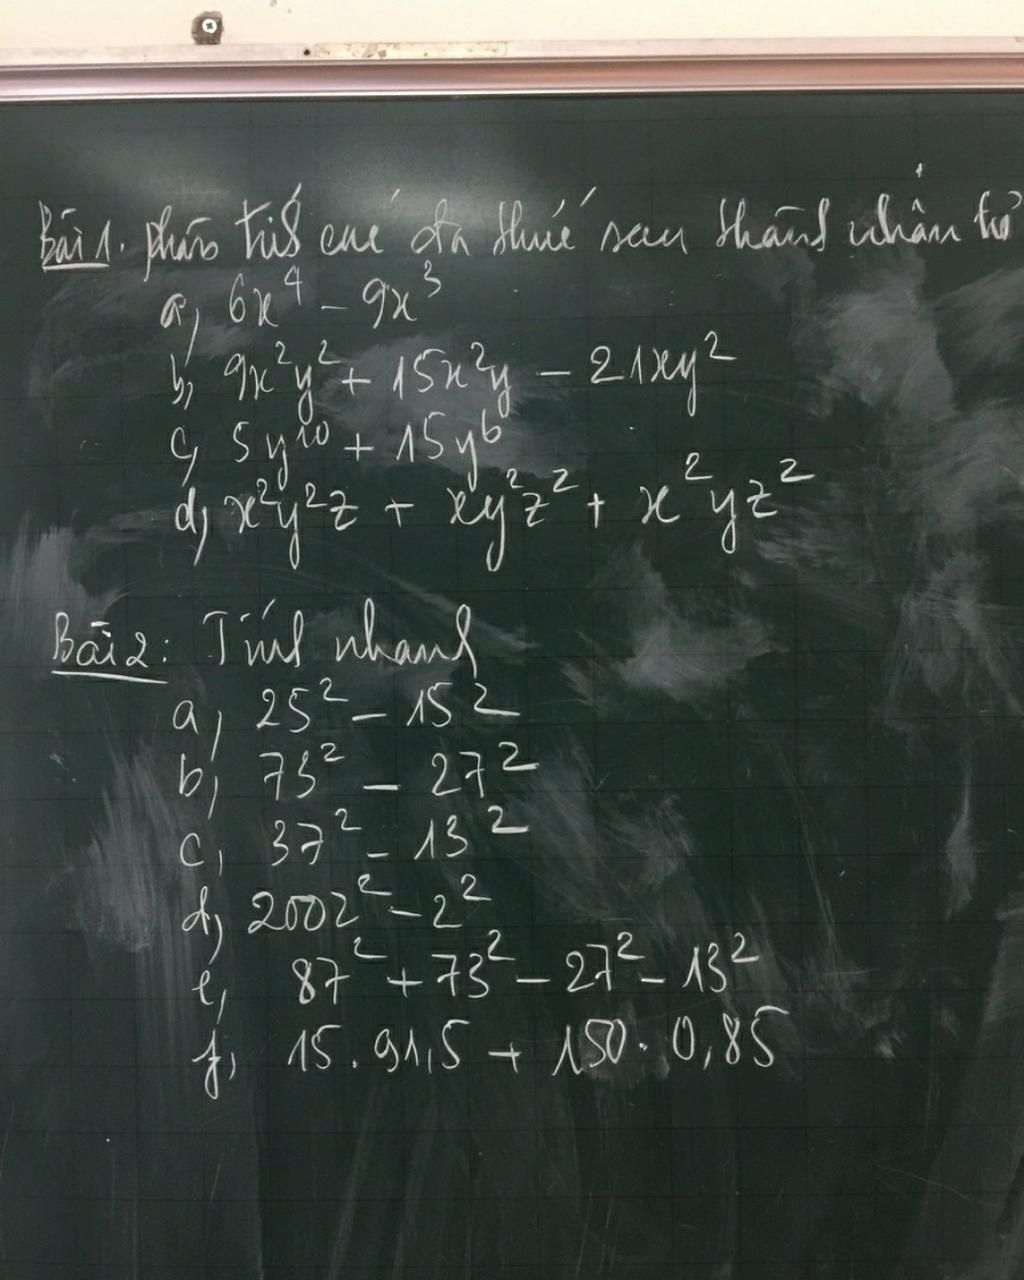 Bài 1. phân tích các đa thức sau thành nhân tử
a, 6x⁴ - 9x³
b, 9x²y² + 15x²y - 21xy²
c, 5y¹⁰ + 15y⁶
d, x²y²z + xy²z² + x²yz²
Bài 2: Tính nhanh
a, 25² - 15²
b, 73² - 27²
c, 37² - 13²
d, 2002² - 2²
e, 87² + 73² - 27² - 13²
f, 15.91,5 + 150.0,85